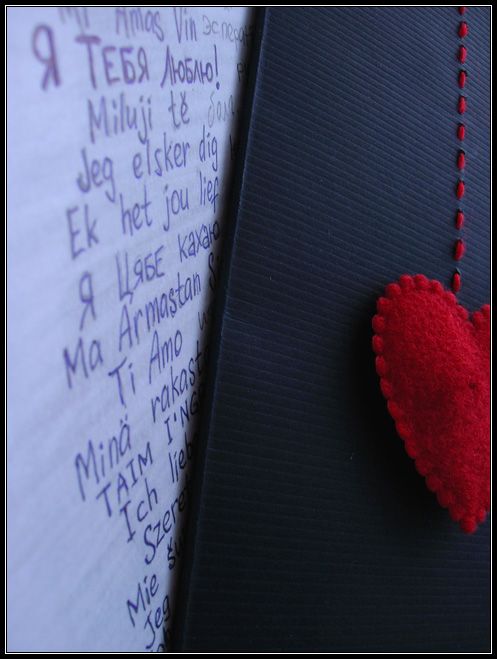 Mi Amas Vin эсперан
Я ТЕБЯ ЛЮБЛЮ!
Miluji tě
Jeg elsker dig
Ek het jou lief
Я ЦЯБЕ кахаю
Ma Armastan
Ti Amo
Minä rakast
TAIM I'NG
Ich lieb
Szere
Mie
Jeg